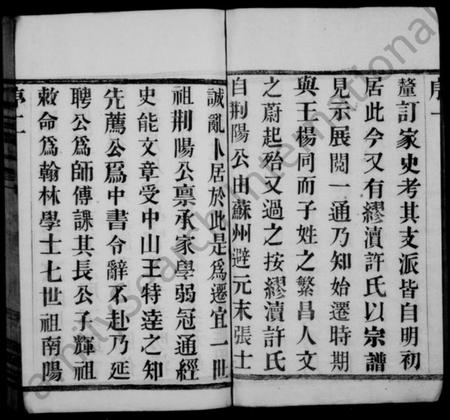 序一
釐訂家史考其支派皆自明初
居此今又有繆瀆許氏以宗譜
見示展閱一通乃知始遷時期
與王楊同而子姓之繁昌人文
之蔚起殆又過之按繆瀆許氏
自荆陽公由蘇州避元末張士
誠亂卜居於此是為遷宜一世
祖荆陽公稟承家學弱冠通經
史能文章受中山王特達之知
先薦公為中書令辭不赴乃延
聘公為師傅課其長公子輝祖
敕命為翰林學士七世祖南陽
序二